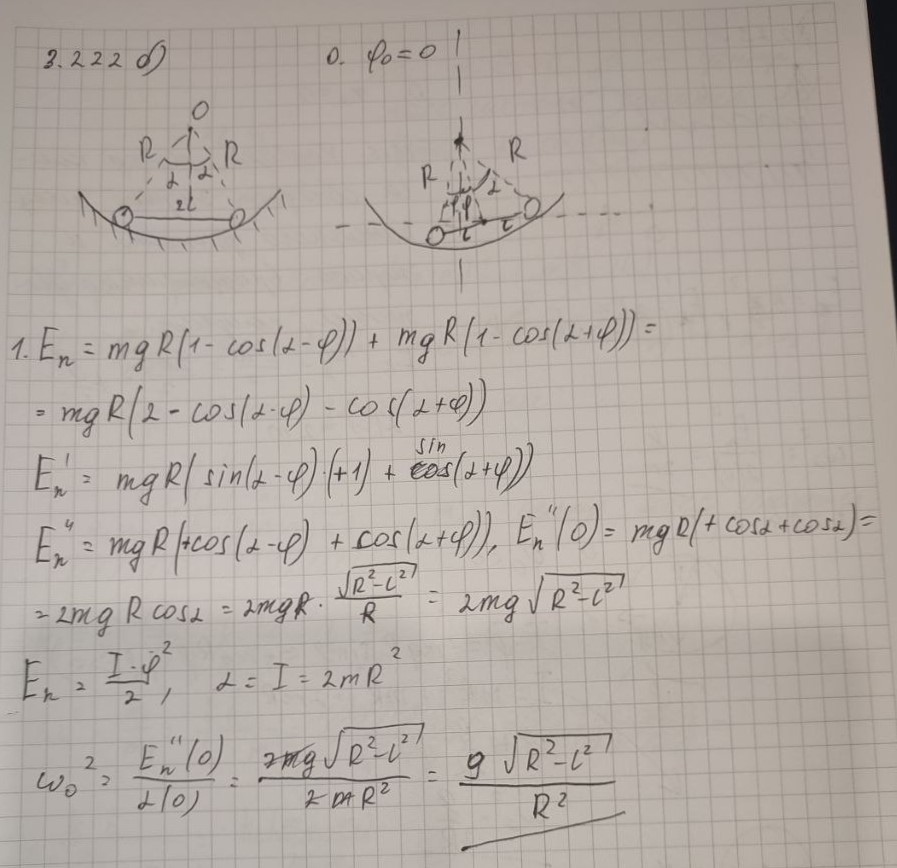 3.222 б)
0. φ₀ = 0
O
R R
α α
2l
R R
φ φ α
l l
1. Eₙ = mgR(1 - cos(α-φ)) + mgR(1 - cos(α+φ)) =
= mgR(2 - cos(α-φ) - cos(α+φ))
Eₙ' = mgR(sin(α-φ)·(+1) + sin(α+φ))
Eₙ'' = mgR(+cos(α-φ) + cos(α+φ)), Eₙ''(0) = mgR(+cosα + cosα) =
= 2mgR cosα = 2mgR · √(R²-l²)/R = 2mg√(R²-l²)
Eₙ = I·φ̇²/2, α = I = 2mR²
ω₀² = Eₙ''(0)/α(0) = 2mg√(R²-l²)/2mR² = g√(R²-l²)/R²